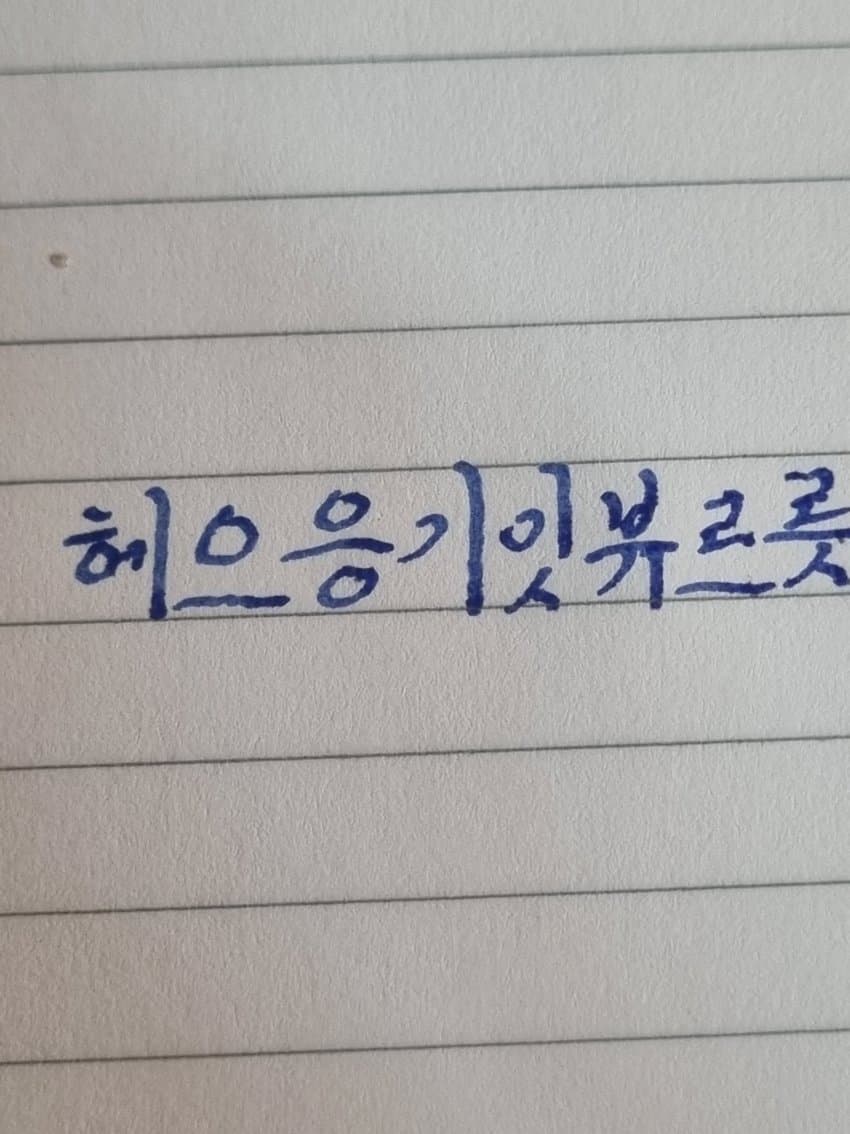 헤으응기잇뷰르릇